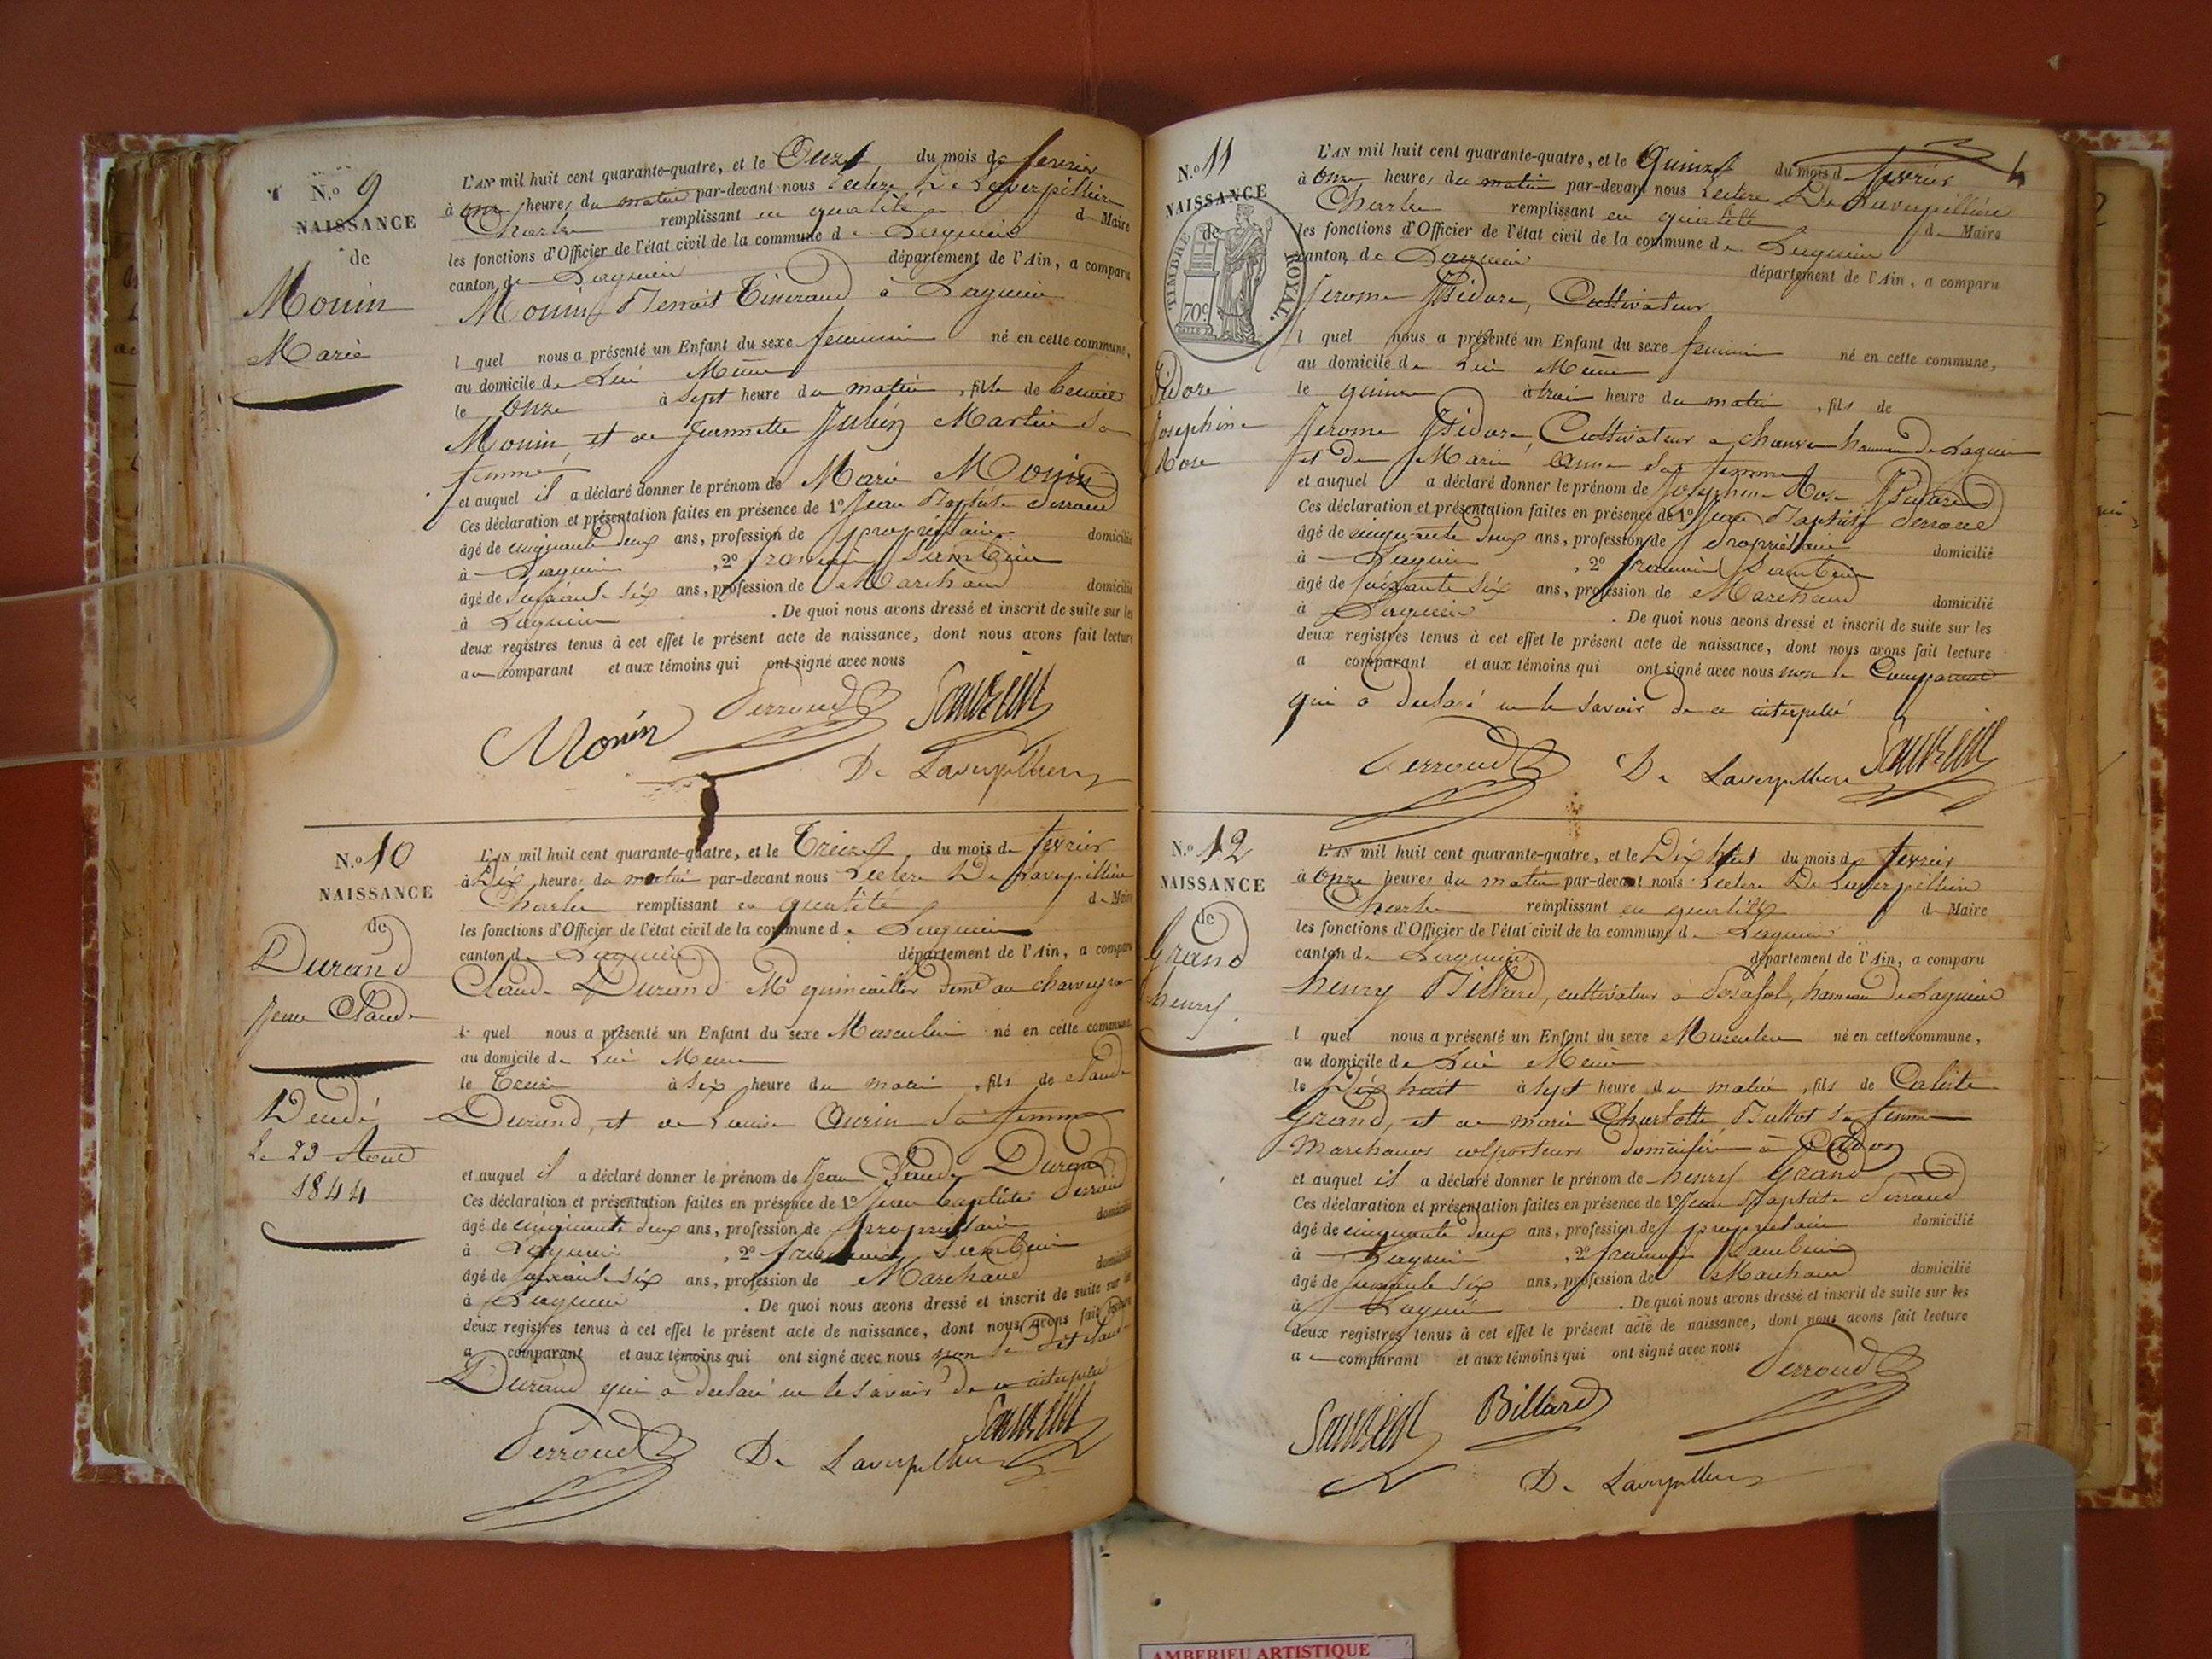 N.o 9
NAISSANCE
de
Monin
Marie
L'AN mil huit cent quarante-quatre, et le Onze du mois de fevrier
à onze heures du matin par-devant nous Leclerc De Laverpillière
Charles remplissant en qualité de Maire
les fonctions d'Officier de l'état civil de la commune de Lagnieu
canton de Lagnieu département de l'Ain, a comparu
Monin Benoit Tisserand à Lagnieu
l quel nous a présenté un Enfant du sexe feminin né en cette commune,
au domicile de Lui Même
le onze à sept heure du matin, fille de Benoit
Monin, et de Jeannette Julien Martin sa
femme
et auquel il a déclaré donner le prénom de Marie Monin
Ces déclaration et présentation faites en présence de 1o Jean Baptiste Perroud
âgé de cinquante deux ans, profession de propriétaire domicilié
à Lagnieu, 2o françois
âgé de soixante six ans, profession de Marchand domicilié
à Lagnieu. De quoi nous avons dressé et inscrit de suite sur les
deux registres tenus à cet effet le présent acte de naissance, dont nous avons fait lecture
au comparant et aux témoins qui ont signé avec nous
Monin Perroud
De Laverpilliere
N.o 10
NAISSANCE
de
Durand
Jean Claude
Décédé
Le 23 Aout
1844
L'AN mil huit cent quarante-quatre, et le Treize du mois de fevrier
à Dix heures du matin par-devant nous Leclerc De Laverpillière
Charles remplissant en qualité de Maire
les fonctions d'Officier de l'état civil de la commune de Lagnieu
canton de Lagnieu département de l'Ain, a comparu
Claude Durand Md quincailler
le quel nous a présenté un Enfant du sexe Masculin né en cette commune
au domicile de Lui Meme
le Treize à six heure du matin, fils de Claude
Durand, et de Louise sa femme
et auquel il a déclaré donner le prénom de Jean Claude Durand
Ces déclaration et présentation faites en présence de 1o Jean Baptiste Perroud
âgé de cinquante deux ans, profession de propriétaire domicilié
à Lagnieu, 2o françois
âgé de soixante six ans, profession de Marchand domicilié
à Lagnieu. De quoi nous avons dressé et inscrit de suite sur les
deux registres tenus à cet effet le présent acte de naissance, dont nous avons fait lecture
a comparant et aux témoins qui ont signé avec nous non le dit Claude
Durand qui a declaré ne le savoir de ce interpellé
Perroud De Laverpilliere
N.o 11
NAISSANCE
de
TIMBRE ROYAL.
70c
Isidore
Josephine
Rose
4
L'AN mil huit cent quarante-quatre, et le Quinze du mois d fevrier
à onze heures du matin par-devant nous Leclerc De Laverpillière
Charles remplissant en qualité de Maire
les fonctions d'Officier de l'état civil de la commune de Lagnieu
canton de Lagnieu département de l'Ain, a comparu
Jerome Isidore, Cultivateur
l quel nous a présenté un Enfant du sexe feminin né en cette commune,
au domicile de Lui Meme
le quinze à trois heure du matin, fils de
Jerome Isidore, Cultivateur a hameau de Lagnieu
et de Marie Anne sa femme
et auquel a déclaré donner le prénom de Josephine Rose Isidore
Ces déclaration et présentation faites en présence de 1o Jean Baptiste Perroud
âgé de cinquante deux ans, profession de propriétaire domicilié
à Lagnieu, 2o françois
âgé de soixante six ans, profession de Marchand domicilié
à Lagnieu. De quoi nous avons dressé et inscrit de suite sur les
deux registres tenus à cet effet le présent acte de naissance, dont nous avons fait lecture
a comparant et aux témoins qui ont signé avec nous non le Comparant
qui a declaré ne le savoir de ce interpellé
Perroud De Laverpilliere
N.o 12
NAISSANCE
de
Grand
henry.
L'AN mil huit cent quarante-quatre, et le Dix huit du mois de fevrier
à onze heures du matin par-devant nous Leclerc De Laverpillière
Charles remplissant en qualité de Maire
les fonctions d'Officier de l'état civil de la commune de Lagnieu
canton de Lagnieu département de l'Ain, a comparu
henry Billiard, cultivateur a hameau De Lagnieu
l quel nous a présenté un Enfant du sexe Masculin né en cette commune,
au domicile de Lui Meme
le Dix huit à sept heure du matin, fils de Calixte
Grand, et de marie Charlotte sa femme
marchands colporteurs domiciliés à
et auquel il a déclaré donner le prénom de henry Grand
Ces déclaration et présentation faites en présence de 1o Jean Baptiste Perroud
âgé de cinquante deux ans, profession de propriétaire domicilié
à Lagnieu, 2o françois
âgé de soixante six ans, profession de Marchand domicilié
à Lagnieu. De quoi nous avons dressé et inscrit de suite sur les
deux registres tenus à cet effet le présent acte de naissance, dont nous avons fait lecture
au comparant et aux témoins qui ont signé avec nous
Perroud
Billard
De Laverpilliere
AMBERIEU ARTISTIQUE